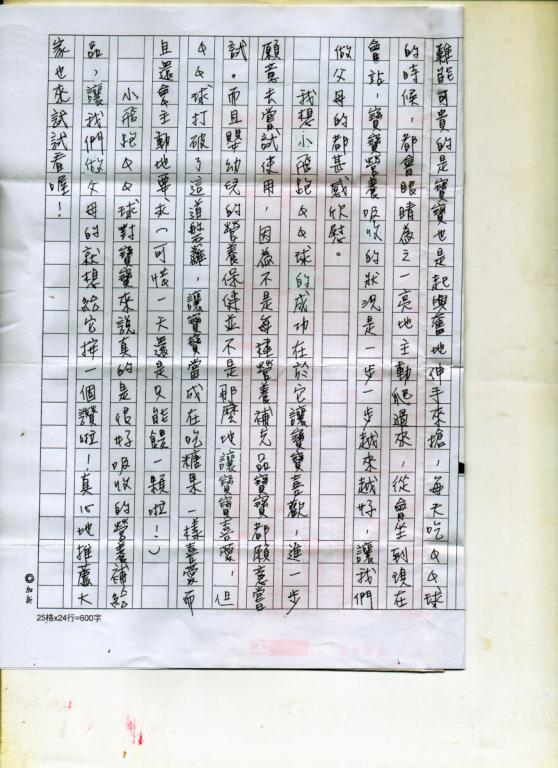 難能可貴的是寶寶也是起興奮地伸手來搶，每天吃QQ球
的時候，都會眼睛為之一亮地主動爬過來，從會坐到現在
會站，寶寶營養吸收的狀況是一步一步越來越好，讓我們
做父母的都甚感欣慰。
我想小飛跑QQ球的成功在於它讓寶寶喜歡，進一步
願意去嘗試使用，因為不是每種營養補充品寶寶都願意嘗
試。而且嬰幼兒的營養保健並不是那麼地讓寶寶喜愛，但
QQ球打破了這道的藩籬，讓寶寶當成在吃糖果一樣喜愛而
且還會主動地要求（可惜一天還是只能餵一顆啦！）
小飛跑QQ球對寶寶來說真的是很好吸收的營養補給
品，讓我們做父母的就想給它按一個讚啦！真心地推薦大
家也來試試看喔！
25格x24行=600字
©加新